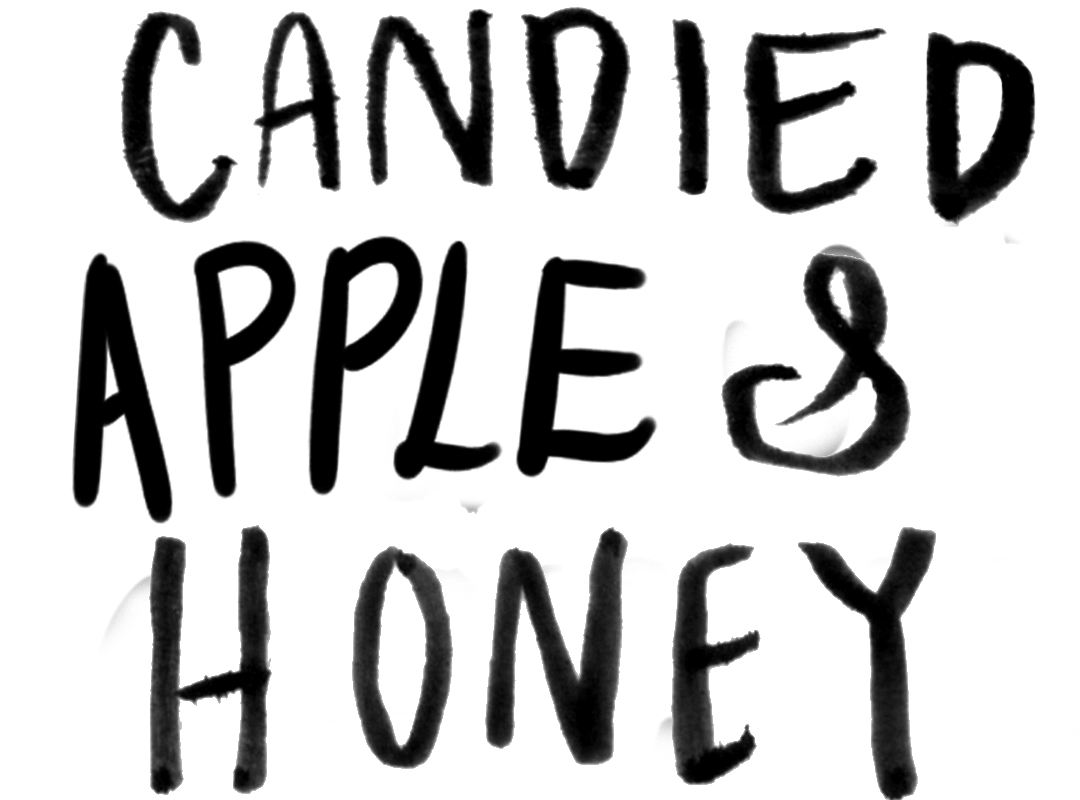 CANDIED
APPLE &
HONEY